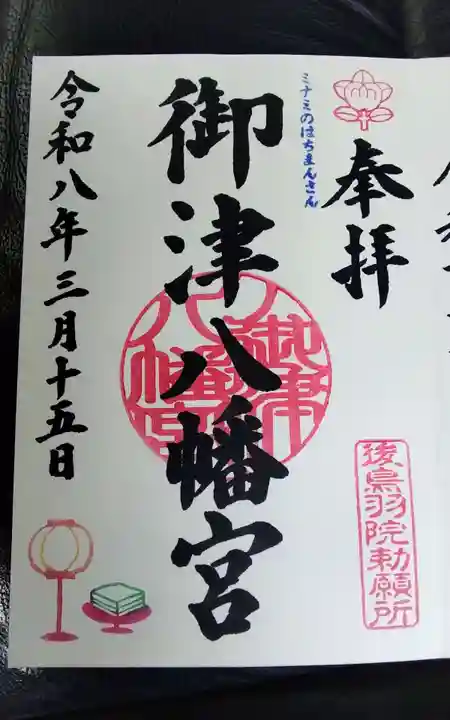 奉拝
後鳥羽院勅願所
ミナミのはちまんさん
御津八幡宮
御津八幡宮
令和八年三月十五日